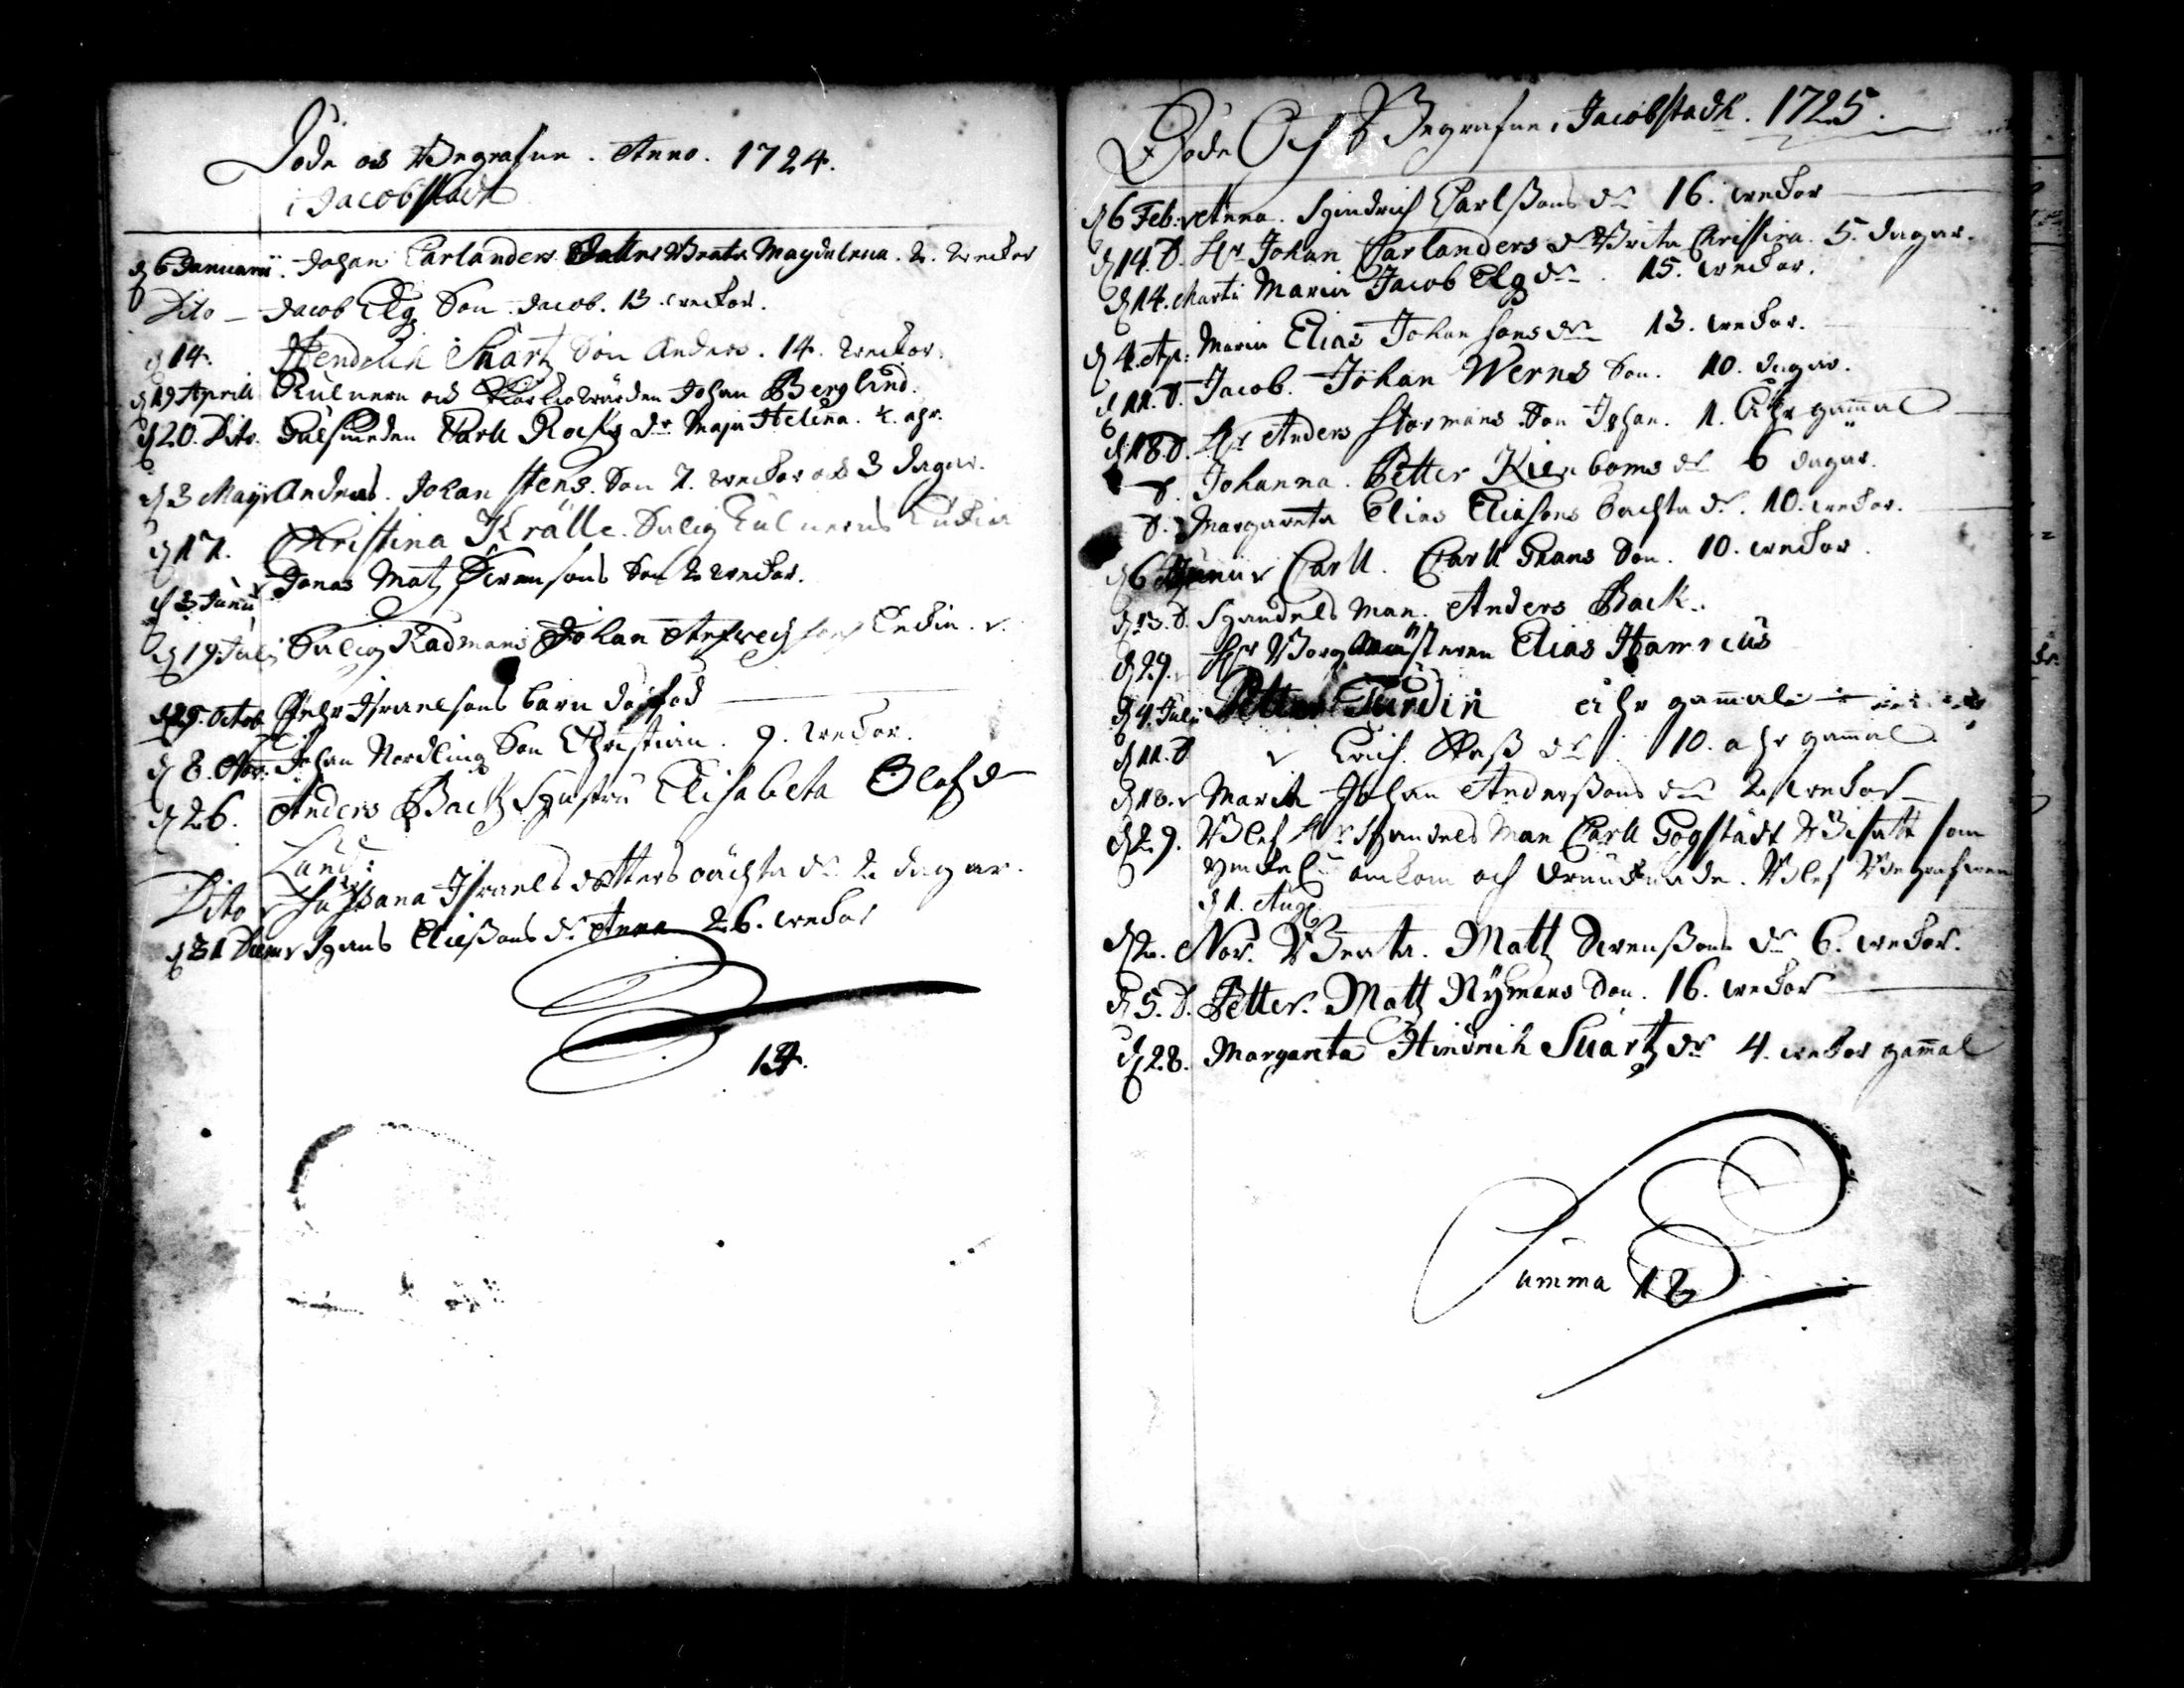 Döde och Begrafne. Anno. 1724.
i Jacobstadh
d 6 Januarii. Johan Carlanders Dotter Beata Magdalena. 2. weckor
Dito – Jacob Elg Son Jacob. 13. weckor.
d 14. Hendrich Suartz Son Anders. 14. weckor.
d 19 Aprill och Johan Berglind.
d 20. Dito. Gulsmeden Carll dr Maja Helena. ½. ahr.
d 3 Maji Andreas. Johan Stens. Son 7. weckor och 3 dagar.
d 17. Christina Krälle. Salig
d 3 Junii Jonas Matz Svensons Son 2 weckor.
d 19 Juli Salig Radmans Johan
d 25. Octob Pehr Israelsons barn
d 8. Nov: Johan Nordling Son Christian. 9. weckor.
d 26. Anders Backz Hustru Elisabeta Olofsd
Dito Susana Israels dotters oächta dr 2 dagar.
d 31 Decem Hans Eliessons dr Anna 26. weckor
14.
Döde Och Begrafne i Jacobstadh. 1725.
d 6 Feb. Anna. Hindrich Carlssons dr 16. weckor
d 14. D. Hr Johan Carlanders dr Brita Christina. 5. dagar.
d 14. Marti Maria Jacob Elg dr 15. weckor.
d 4. Ap: Maria Elias Johansons dr 13. weckor.
d 11. D. Jacob. Johan Werns Son. 10. dagar.
d 18. D. Hr Anders Stormans Son Johan. 1. Ahr gammal
D. Johanna. Petter Kierboms dr 6 dagar.
D. Margareta Elias Eliasons oächta dr. 10. weckor.
d 6 Junii Carll. Carll Grans Son. 10. weckor.
d 13. D. Handels Man. Anders Back.
d 29. Hr Borgmästaren Elias
d 4. Julii Petter Turdin ahr gammal
d 11. D Erich. dr 10. ahr gammal
d 18. Marita Johan Anderssons dr 2 weckor
d 29. Blef Hr Handels Man Carll Gogstädt Bisatt som
omkom och drunknade. Blef Begrafwen
d 1. Aug.
d 2. Nov. Beata. Matz Swenssons dr 6. weckor.
d 5. D. Petter. Matz Nÿmans Son. 16. weckor
d 28. Margareta Hindrich Suartz dr 4. weckor gammal
Summa 18